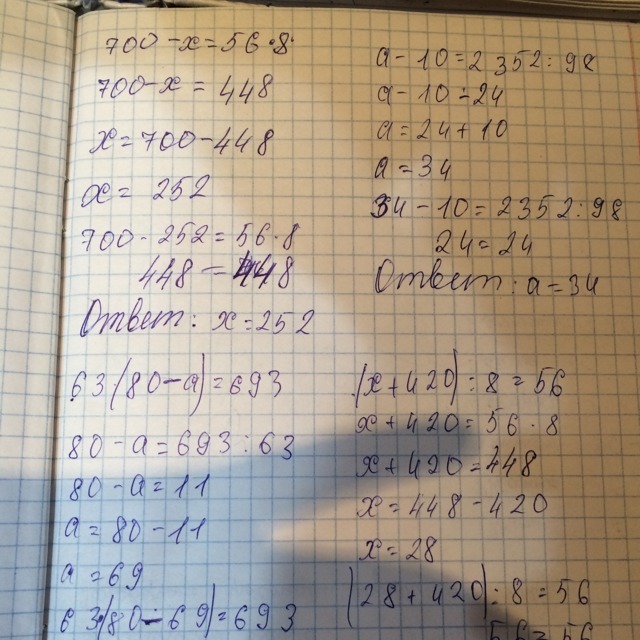 700 - x = 56 · 8
700 - x = 448
x = 700 - 448
x = 252
700 - 252 = 56 · 8
448 = 448
Ответ: x = 252
63(80 - a) = 693
80 - a = 693 : 63
80 - a = 11
a = 80 - 11
a = 69
63(80 - 69) = 693
a - 10 = 2352 : 98
a - 10 = 24
a = 24 + 10
a = 34
34 - 10 = 2352 : 98
24 = 24
Ответ: a = 34
(x + 420) : 8 = 56
x + 420 = 56 · 8
x + 420 = 448
x = 448 - 420
x = 28
(28 + 420) : 8 = 56
56 = 56